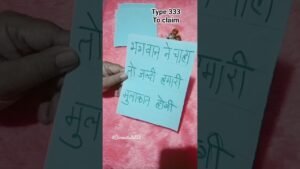 Type 333
To claim
भगवान ने चाहा
तो जल्दी हमारी
मुलाकात होगी